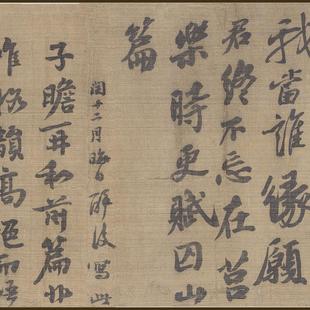 我當誰緣願
君終不忘在莒
樂時更賦囚山
篇
閏十二月晦日醉後寫此
子瞻再和前篇非
惟格韻高絕而語